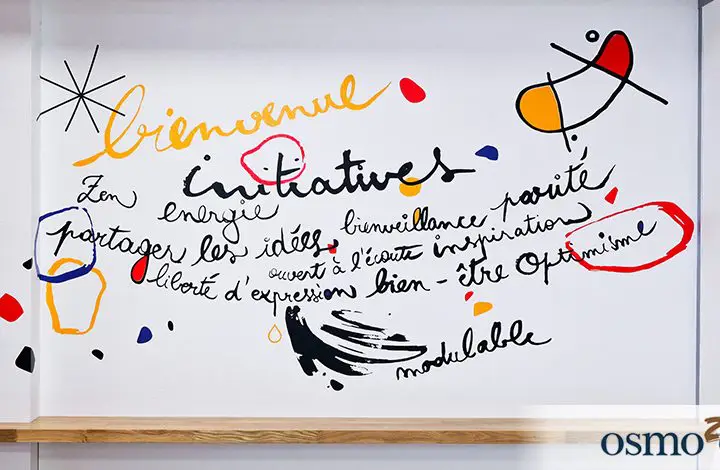 bienvenue
initiatives
Zen energie bienveillance parité
partager les idées ouvert à l'écoute inspiration
liberté d'expression bien-être Optimisme
modulable
osmo